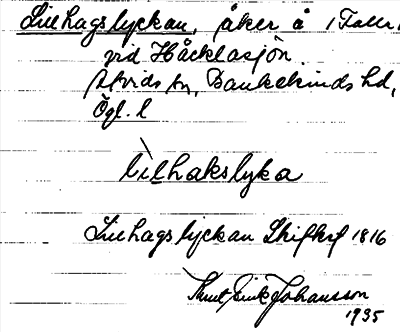 Lillhagslyckan, åker å
vid Håcklasjön.
Åtvids sn, Bankekinds hd,
Ögl. l
lillhakslyka
Lillhagslyckan Skifteskf 1816
Knut Erik Johansson
1935